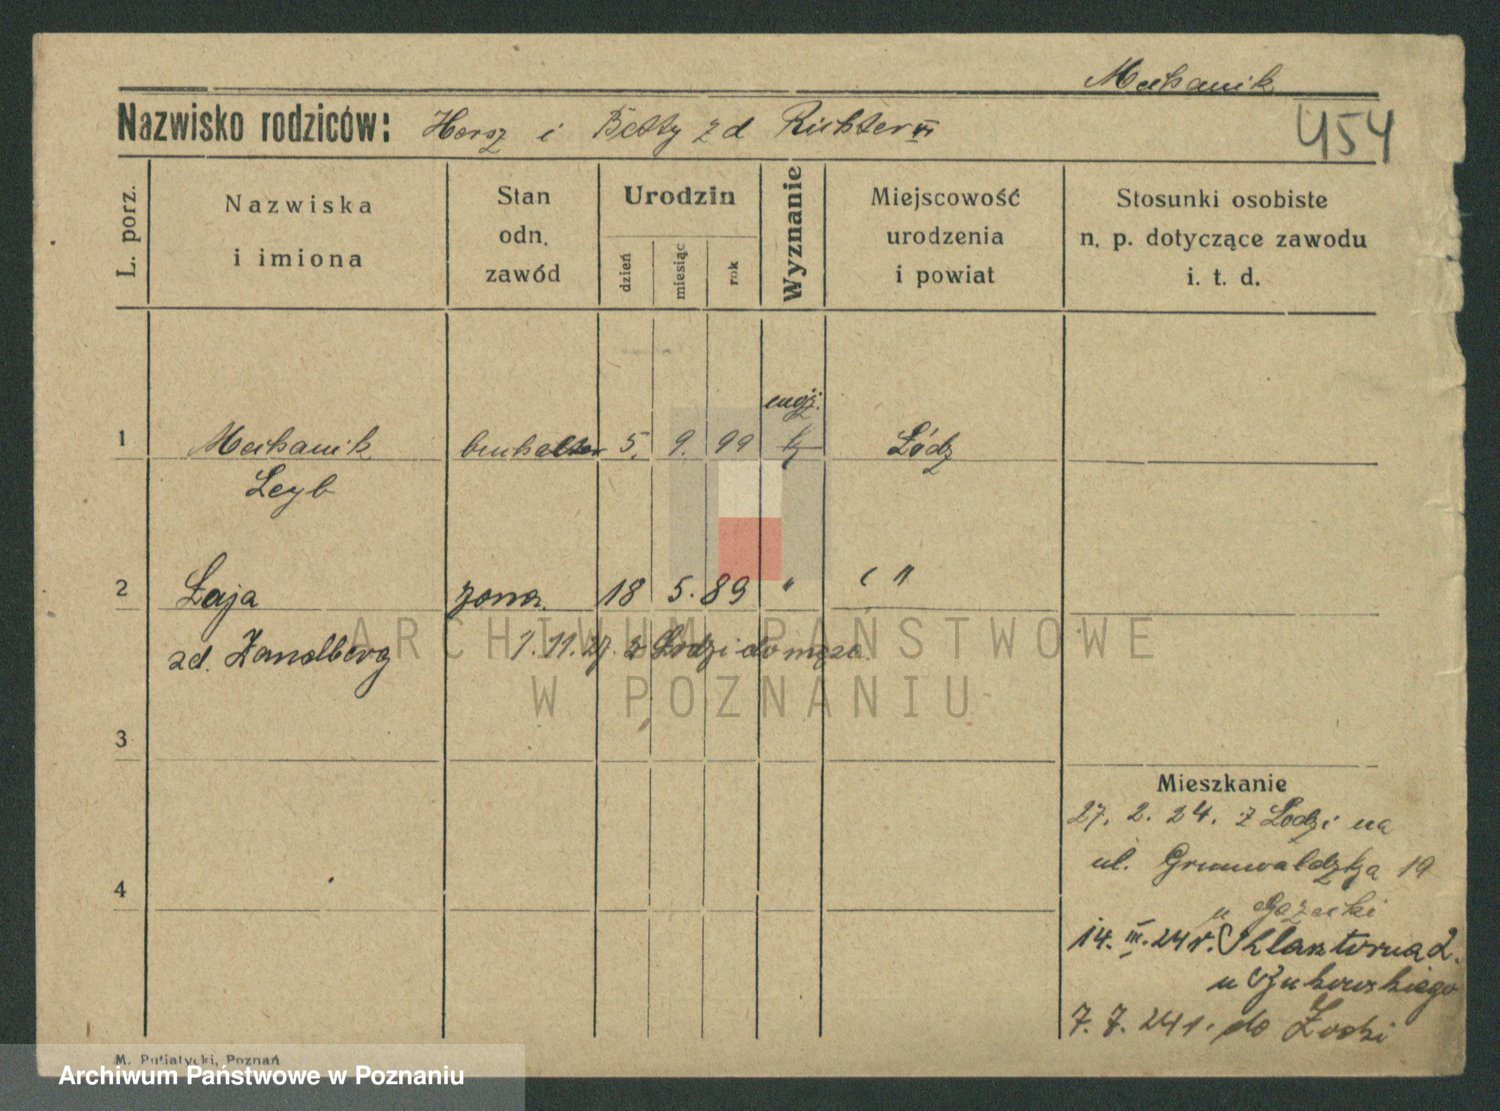 Mechanik
Nazwisko rodziców: Hersz i Betty zd Richter VI
454
L. porz.
Nazwiska
i imiona
Stan
odn.
zawód
Urodzin
dzień
miesiąc
rok
Wyznanie
Miejscowość
urodzenia
i powiat
Stosunki osobiste
n. p. dotyczące zawodu
i. t. d.
1 Mechanik buchalter 5. 9. 99 Łódź
Leyb
2 Łaja żona 18 5. 89 " "
zd. Zandberg 1. 11. 27. z Łodzi do męża.
3
4
Mieszkanie
27. 2. 24. z Łodzi na
ul. Grunwaldzka 19
u
14. III. 24 r. Klasztorna 2.
u Żukowskiego
7. 7. 24 r. do Łodzi
M. Putiatycki, Poznań
ARCHIWUM PAŃSTWOWE
W POZNANIU
Archiwum Państwowe w Poznaniu